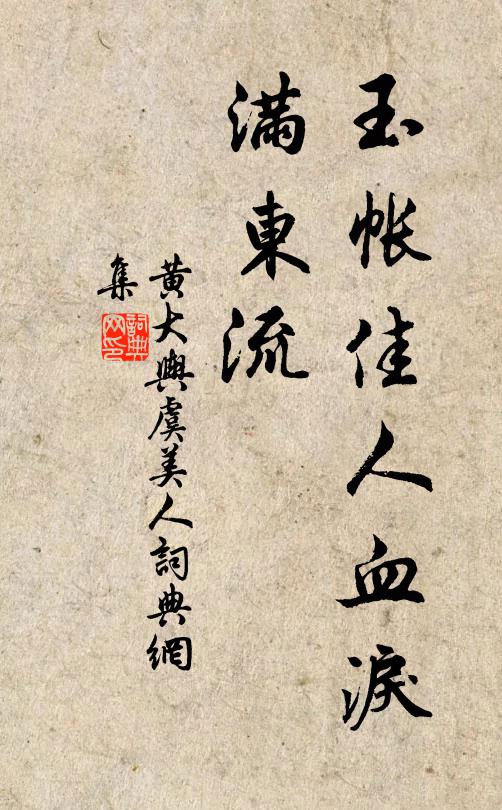 玉帐佳人血淚
滿東流
黃大輿虞美人詞典網
集
詞典
网印